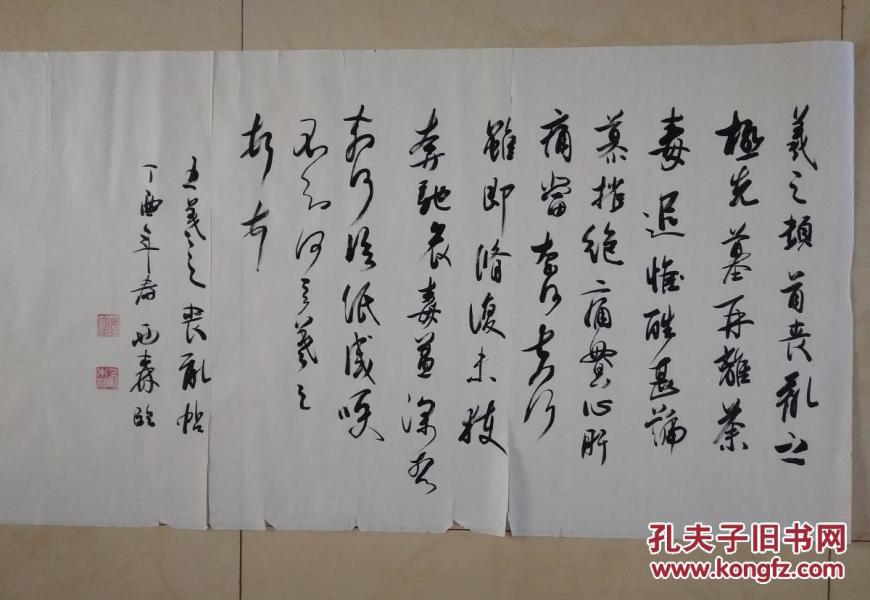 羲之頓首喪亂之
極先墓再離荼
毒追惟酷甚號
慕摧絕痛貫心肝
痛當奈何奈何
雖即脩復未獲
奔馳哀毒益深奈
何奈何臨紙感哽
不知何言羲之
頓首
王羲之喪亂帖
丁酉年春 雨森臨
孔夫子旧书网
www.kongfz.com